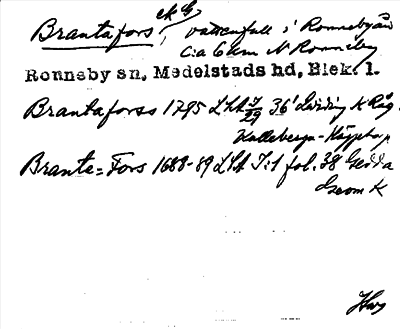 ek G
Brantafors, vattenfall i Ronnebyån
c:a 6 km N Ronneby
Ronneby sn, Medelstads hd, Blek. l.
Brantaforss 1795 LSA 7/29 36
Kalleberga-
Brante=Fors 1688-89 LSA I:1 fol. 38 Gedda
Geom K